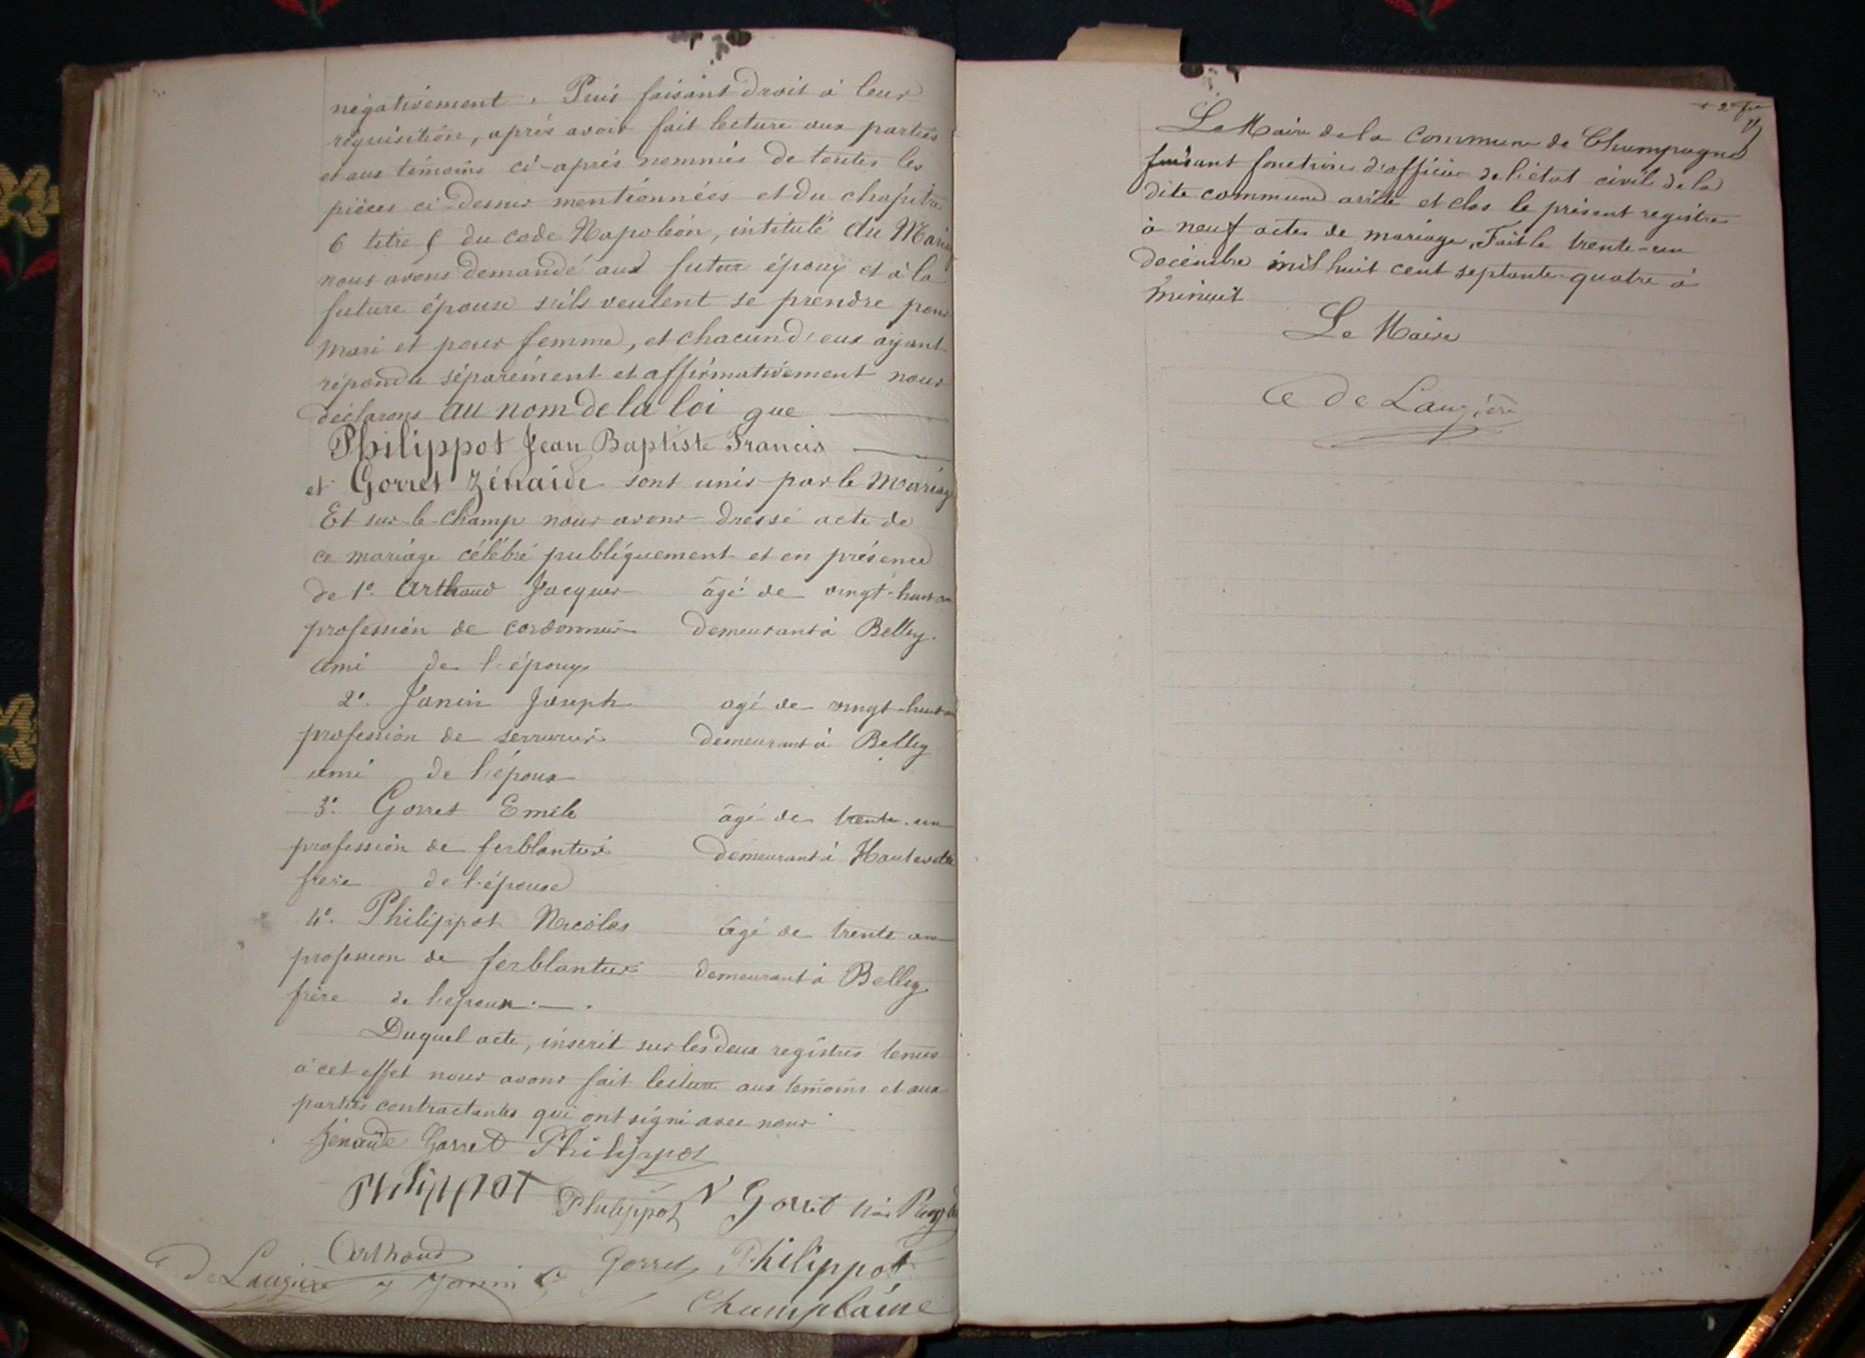 négativement. Puis faisant droit à leur
réquisition, après avoir fait lecture aux parties
et aux témoins ci-après nommés de toutes les
pièces ci-dessus mentionnées et du chapitre
6 titre 5 du code Napoléon, intitulé du Mariage
nous avons demandé aux futur époux et à la
future épouse s'ils veulent se prendre pour
mari et pour femme, et chacun d'eux ayant
répondu séparément et affirmativement nous
déclarons au nom de la loi que
Philippot Jean Baptiste Francis
et Gorret Zénaïde sont unis par le Mariage
Et sur-le-champ nous avons dressé acte de
ce mariage célébré publiquement et en présence
de 1º. Arthaud Jacques âgé de vingt-huit ans
profession de cordonnier demeurant à Belley.
ami de l'époux
2º. Janin Joseph agé de vingt-huit ans
profession de serrurier demeurant à Belley
ami de l'époux
3º. Gorret Emile âgé de trente-un
profession de ferblantier demeurant à Hauteville
frère de l'épouse
4º. Philippot Nicolas âgé de trente ans
profession de ferblantier demeurant à Belley.
frère de l'époux.
Duquel acte, inscrit sur les deux registres tenus
à cet effet nous avons fait lecture aux témoins et aux
parties contractantes qui ont signé avec nous
Zénaïde Gorret Philippot
Philippot Philippot Vve Gorret née
Arthaud Gorret Philippot
C de Laugière J Janin
Champlaine
Le Maire de la commune de Champagne
faisant fonctions d'officier de l'état civil de la
dite commune arrête et clos le présent registre
à neuf actes de mariage. Fait le trente-un
décembre mil huit cent septante-quatre à
minuit
Le Maire
C de Laugière